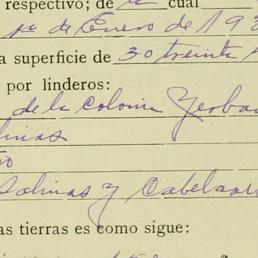 respectivo; de la cual
1º de Enero de 19
a superficie de 30 treinta
por linderos:
de la Colonia Yerba
linas
Salinas y Cabelsor
as tierras es como sigue: